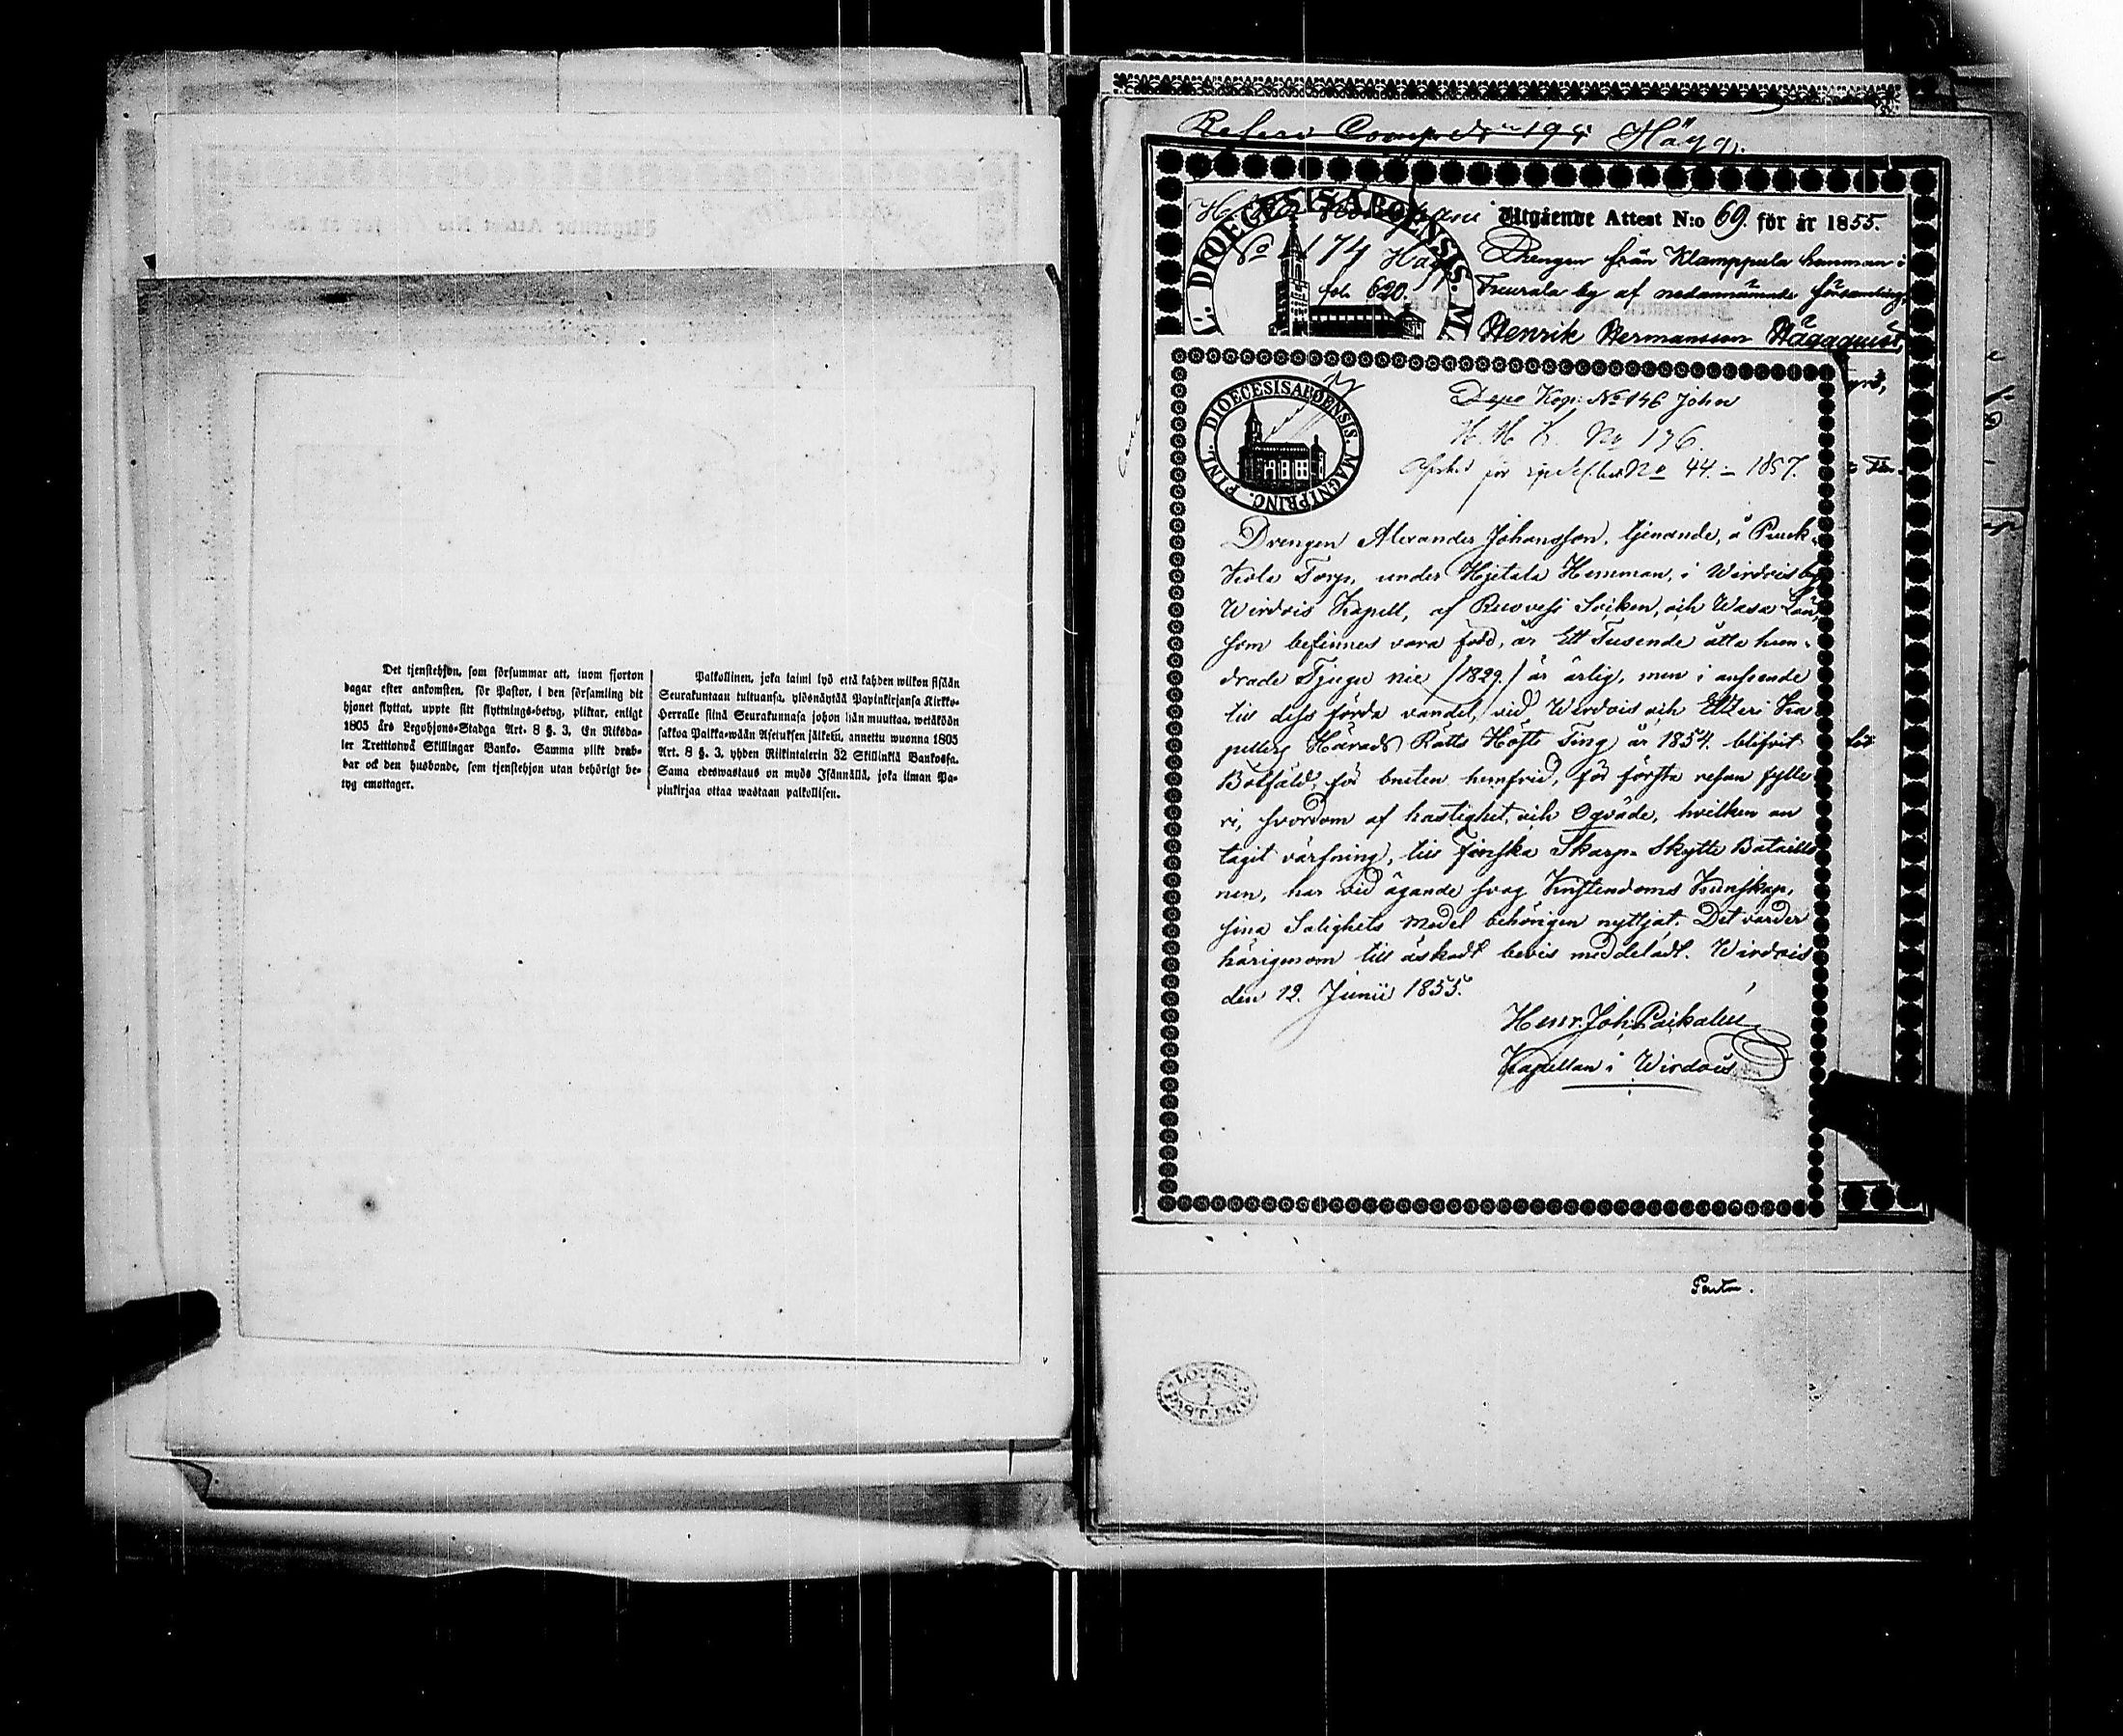 Det tjenstehjon, som försummar att, inom fjorton
dagar efter ankomsten, för Pastor, i den församling dit
hjonet flyttat, uppte sitt flyttnings-betyg, pliktar, enligt
1805 års Legohjons-Stadga Art. 8 §. 3, En Riksda-
ler Trettiotvå Skillingar Banko. Samma plikt drab-
bar ock den husbonde, som tjenstehjon utan behörigt be-
tyg emottager.
Palkollinen, joka laimi lyö että kahden wiikon sisään
Seurakuntaan tultuansa, ylösnäytää Papinkirjansa Kirkko-
Herralle siinä Seurakunnasa johon hän muuttaa, wetäköön
sakkoa Palkka-wään Asetuksen jälkein, annettu wuonna 1805
Art. 8 §. 3, yhden Riikintalerin 32 Skillinkiä Bankossa.
Sama edeswastaus on myös Isännällä, joka ilman Pa-
pinkirjaa ottaa wastaan palkollisen.
Refers Comp. 19 Hägg.
Utgående Attest N:o 69. för år 1855.
No 174 Hägg
fol. 620.
Drengen från Klamppula hemman i
by af nedannämnde församling,
Henrik Hermansson Häggquist,
DIOECESIS ABOENSIS. M
Depo Kop: No 146 John
H. M K. No 136.
No 44. - 1857.
FINL. DIOECESIS ABOENSIS. MAGNI PRINC.
Drengen Alexander Johansson, tjenande, å
Torp, under Hjetala Hemman, i Wirdois by
Wirdois Kapell, af Ruovesi Socken, och Wasa Län,
som befinnes vara född, år Ett Tusende åtta hun-
drade Tjugu nie (1829.) är ärlig, men i anseende
till dess förda vandel, vid Wirdois och Etseri Ka
pellers Härads Rätts Höste Ting år 1854. blifvit
Botfäld, för bruten hemfrid, för första resan fylle
ri, svordom af hastighet, och Oqväde, hvilken an
tagit värfning, till Finska Skarp-Skytte Bataillo
nen, har vid ägande svag Kristendoms Kunskap,
sina Salighets Medel behörigen nyttjat. Det varder
härigenom till äskadt bevis meddeladt. Wirdois
den 12. Junii 1855.
Henr. Joh. Paikalen
Kapellan i Wirdois
Pastor.
LOVISA
PAST. EMB